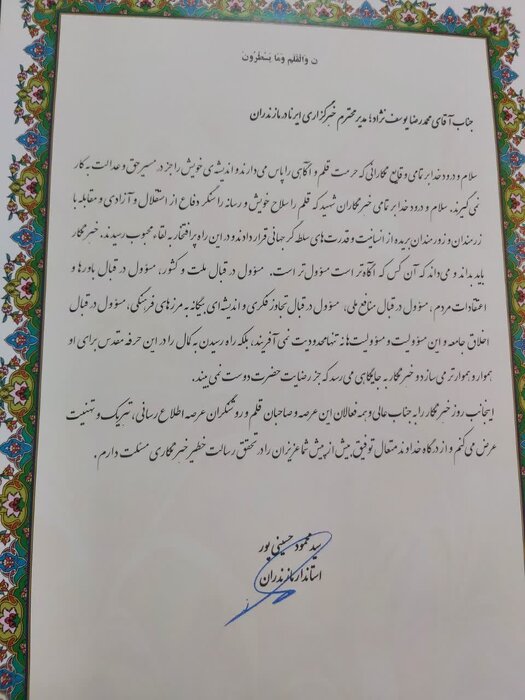 ن وَالقَلَمِ وَمَا يَسْطُرُونَ
جناب آقای محمدرضا یوسف نژاد؛ مدیر محترم خبرگزاری ایرنا در مازندران
سلام و درود خدا بر تمامی وقایع نگارانی که حرمت قلم و آگاهی را پاس می دارند و اندیشه ی خویش را جز در مسیر حق و عدالت به کار
نمی گیرند. سلام و درود خدا بر تمامی خبرنگاران شهید که قلم را سلاح خویش و رسانه را سنگر دفاع از استقلال و آزادی و مقابله با
زرمندان و زورمندان بریده از انسانیت و قدرت های سلطه گر جهانی قرار دادند و در این راه پر افتخار به لقاء محبوب رسیدند. خبرنگار
باید بداند و می داند که آن کس که آگاه تر است مسؤول تر است. مسؤول در قبال ملت و کشور، مسؤول در قبال باورها و
اعتقادات مردم، مسؤول در قبال منافع ملی، مسؤول در قبال تجاوز فکری و اندیشه ای بیگانه به مرزهای فرهنگی، مسؤول در قبال
اخلاق جامعه و این مسؤولیت و مسؤولیت ها نه تنها محدودیت نمی آفریند، بلکه راه رسیدن به کمال را در این حرفه مقدس برای او
هموار و هموارتر می سازد و خبرنگار به جایگاهی می رسد که جز رضایت حضرت دوست نمی بیند.
اینجانب روز خبرنگار را به جناب عالی و همه فعالان این عرصه و صاحبان قلم و روشنگران عرصه اطلاع رسانی، تبریک و تهنیت
عرض می کنم و از درگاه خداوند متعال توفیق بیش از پیش شما عزیزان را در تحقق رسالت خطیر خبرنگاری مسئلت دارم.
سید محمود حسینی پور
استاندار مازندران